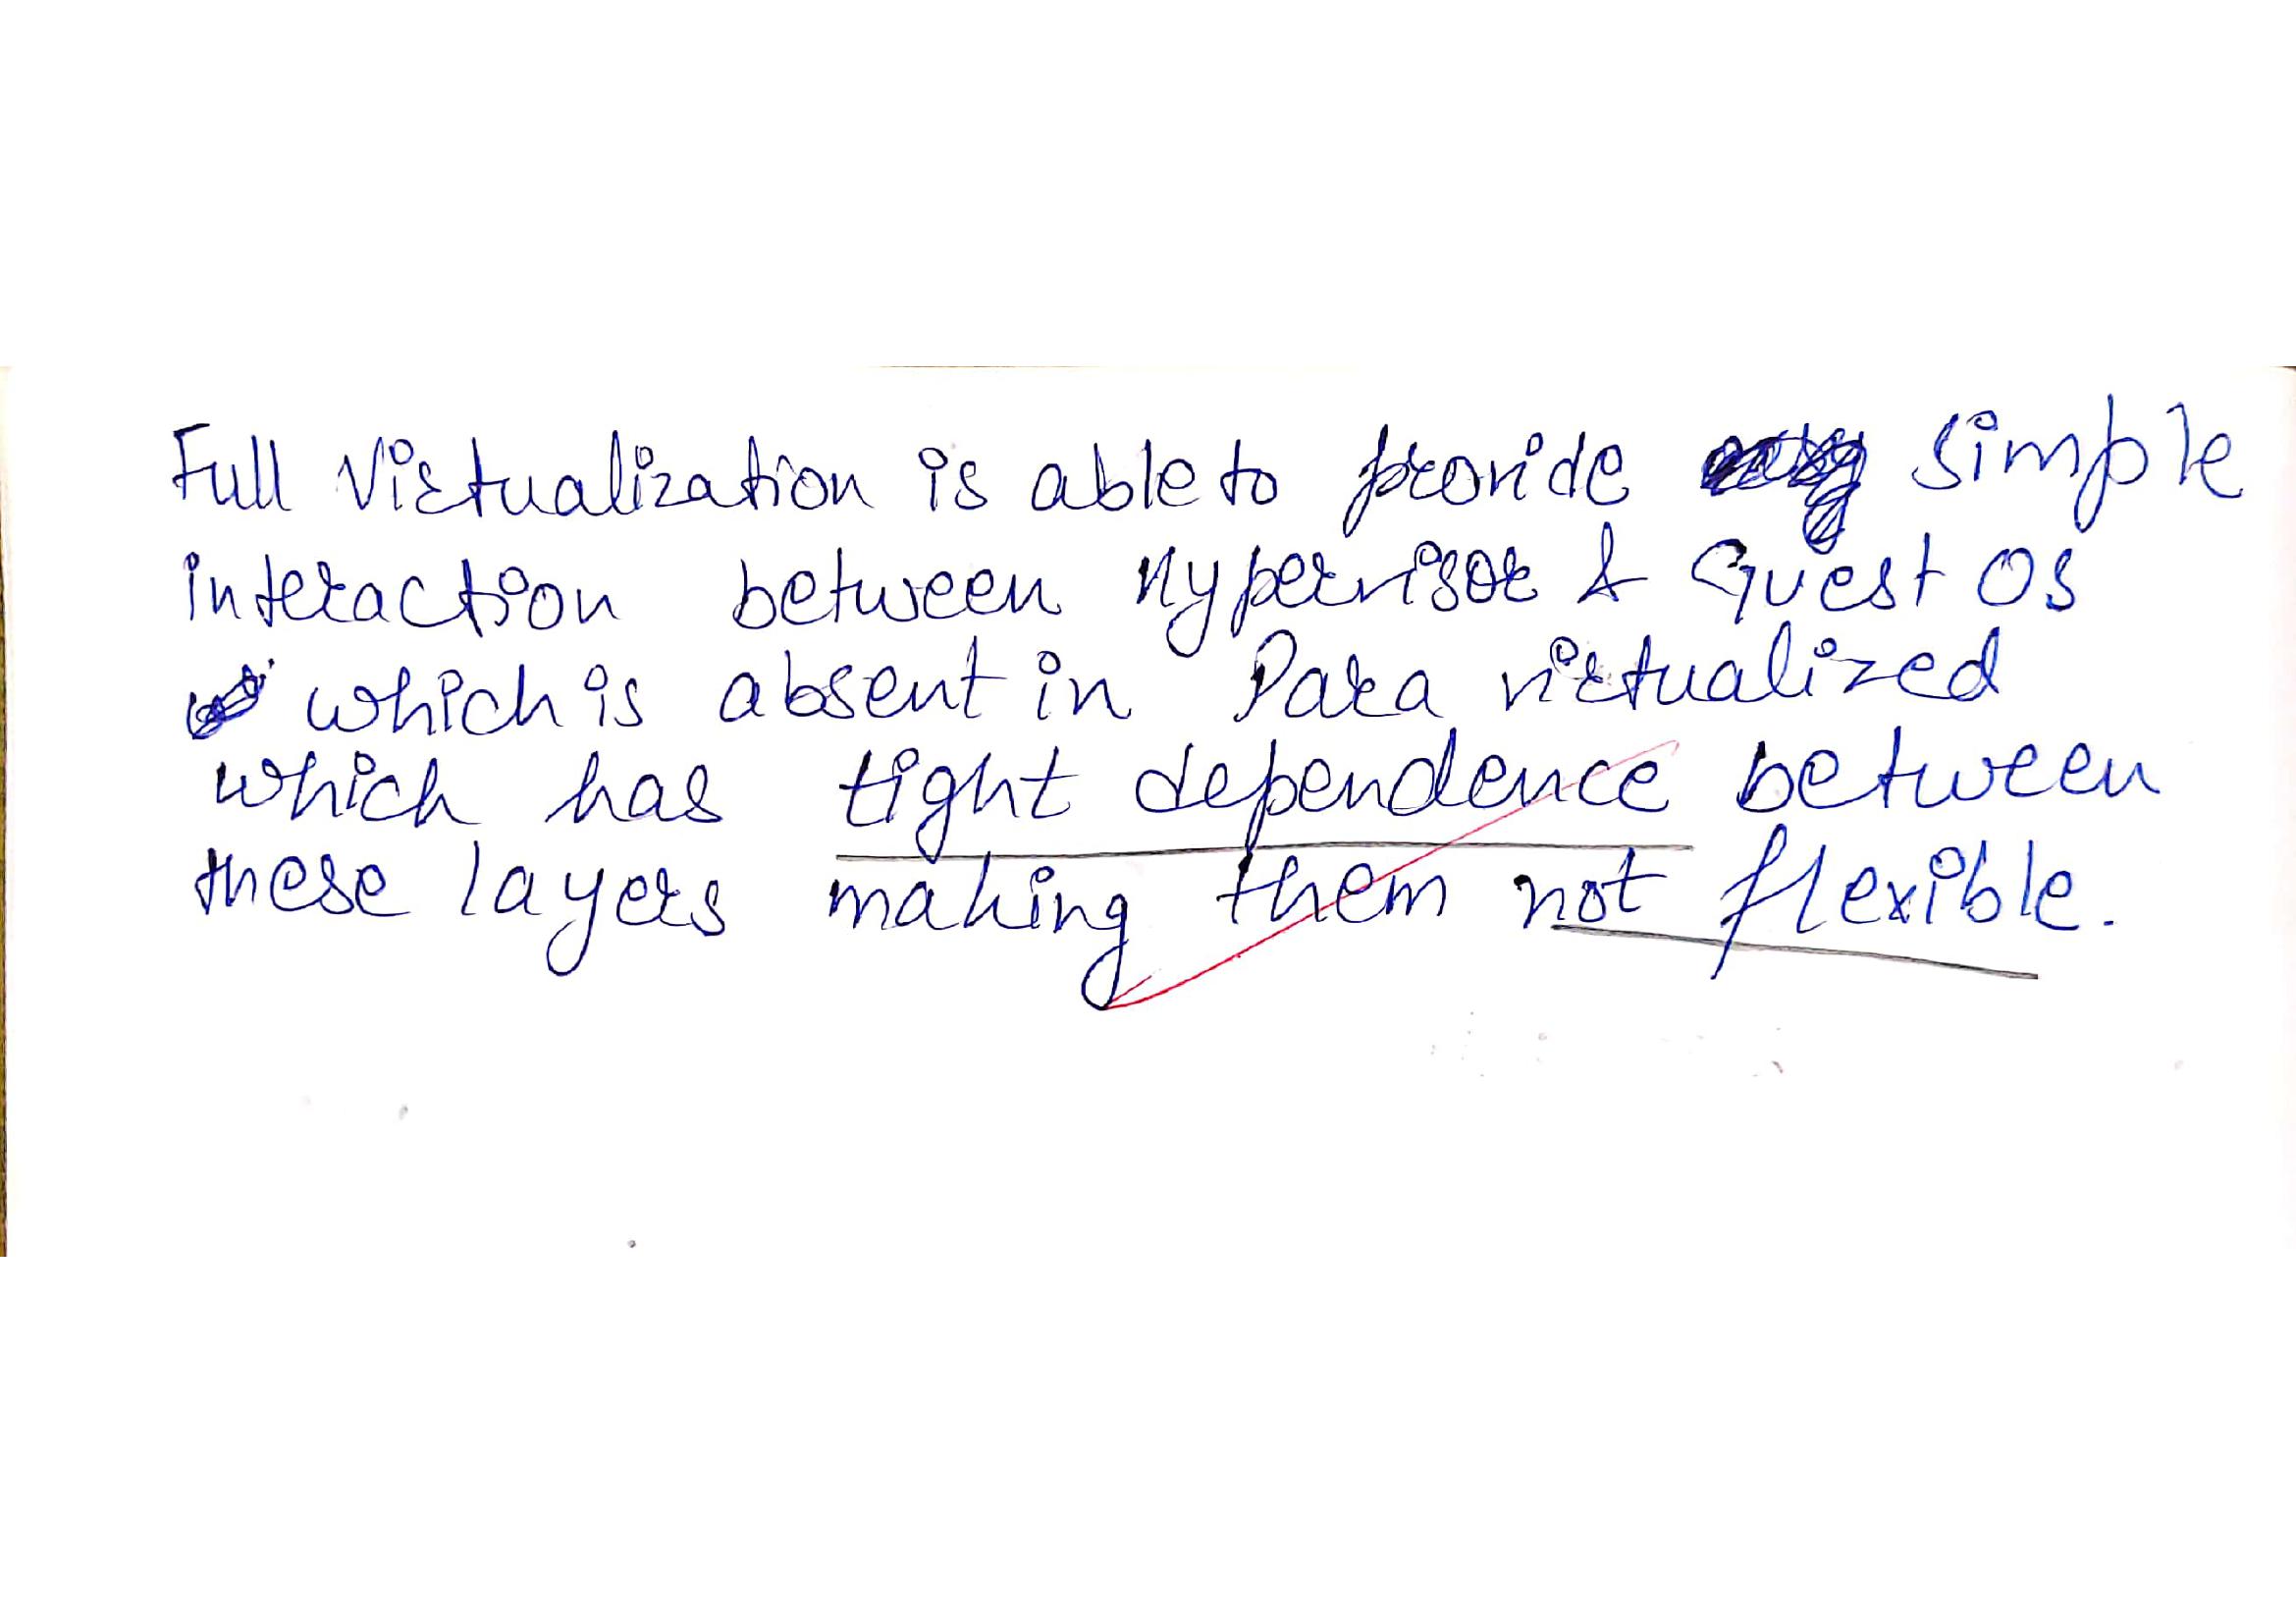 Full Virtualization is able to provide simple
interaction between Hypervisor & Guest OS
which is absent in Para virtualized
which has tight dependence between
these layers making them not flexible.